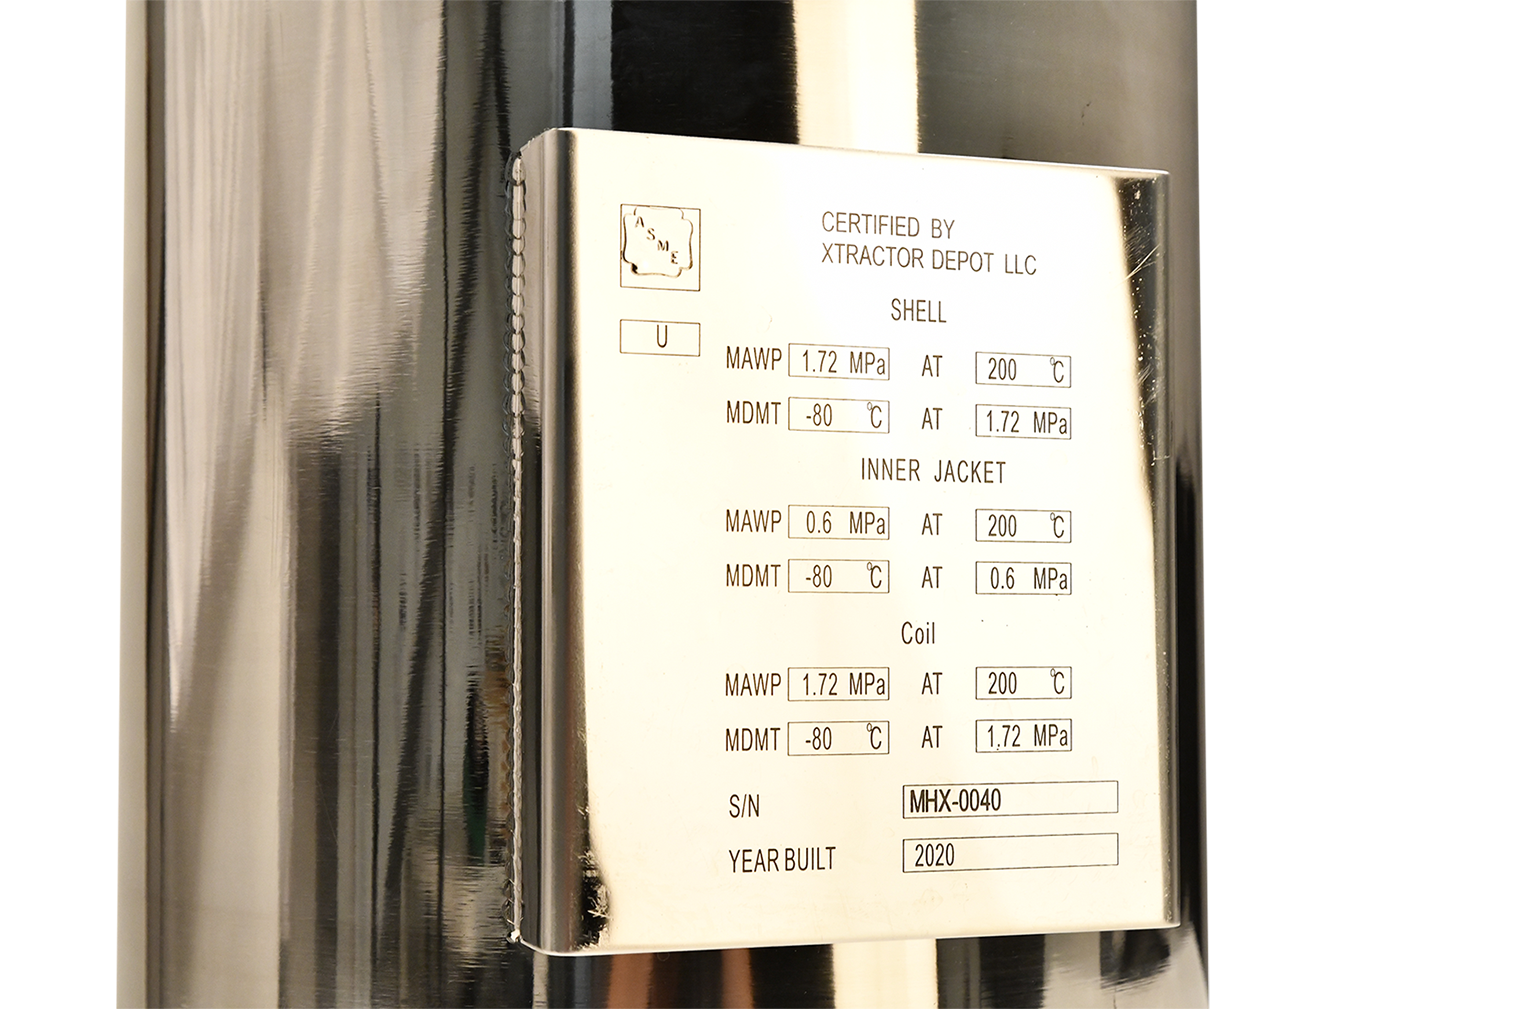 ASME
CERTIFIED BY
XTRACTOR DEPOT LLC
U
SHELL
MAWP 1.72 MPa AT 200 °C
MDMT -80 °C AT 1.72 MPa
INNER JACKET
MAWP 0.6 MPa AT 200 °C
MDMT -80 °C AT 0.6 MPa
Coil
MAWP 1.72 MPa AT 200 °C
MDMT -80 °C AT 1.72 MPa
S/N MHX-0040
YEAR BUILT 2020